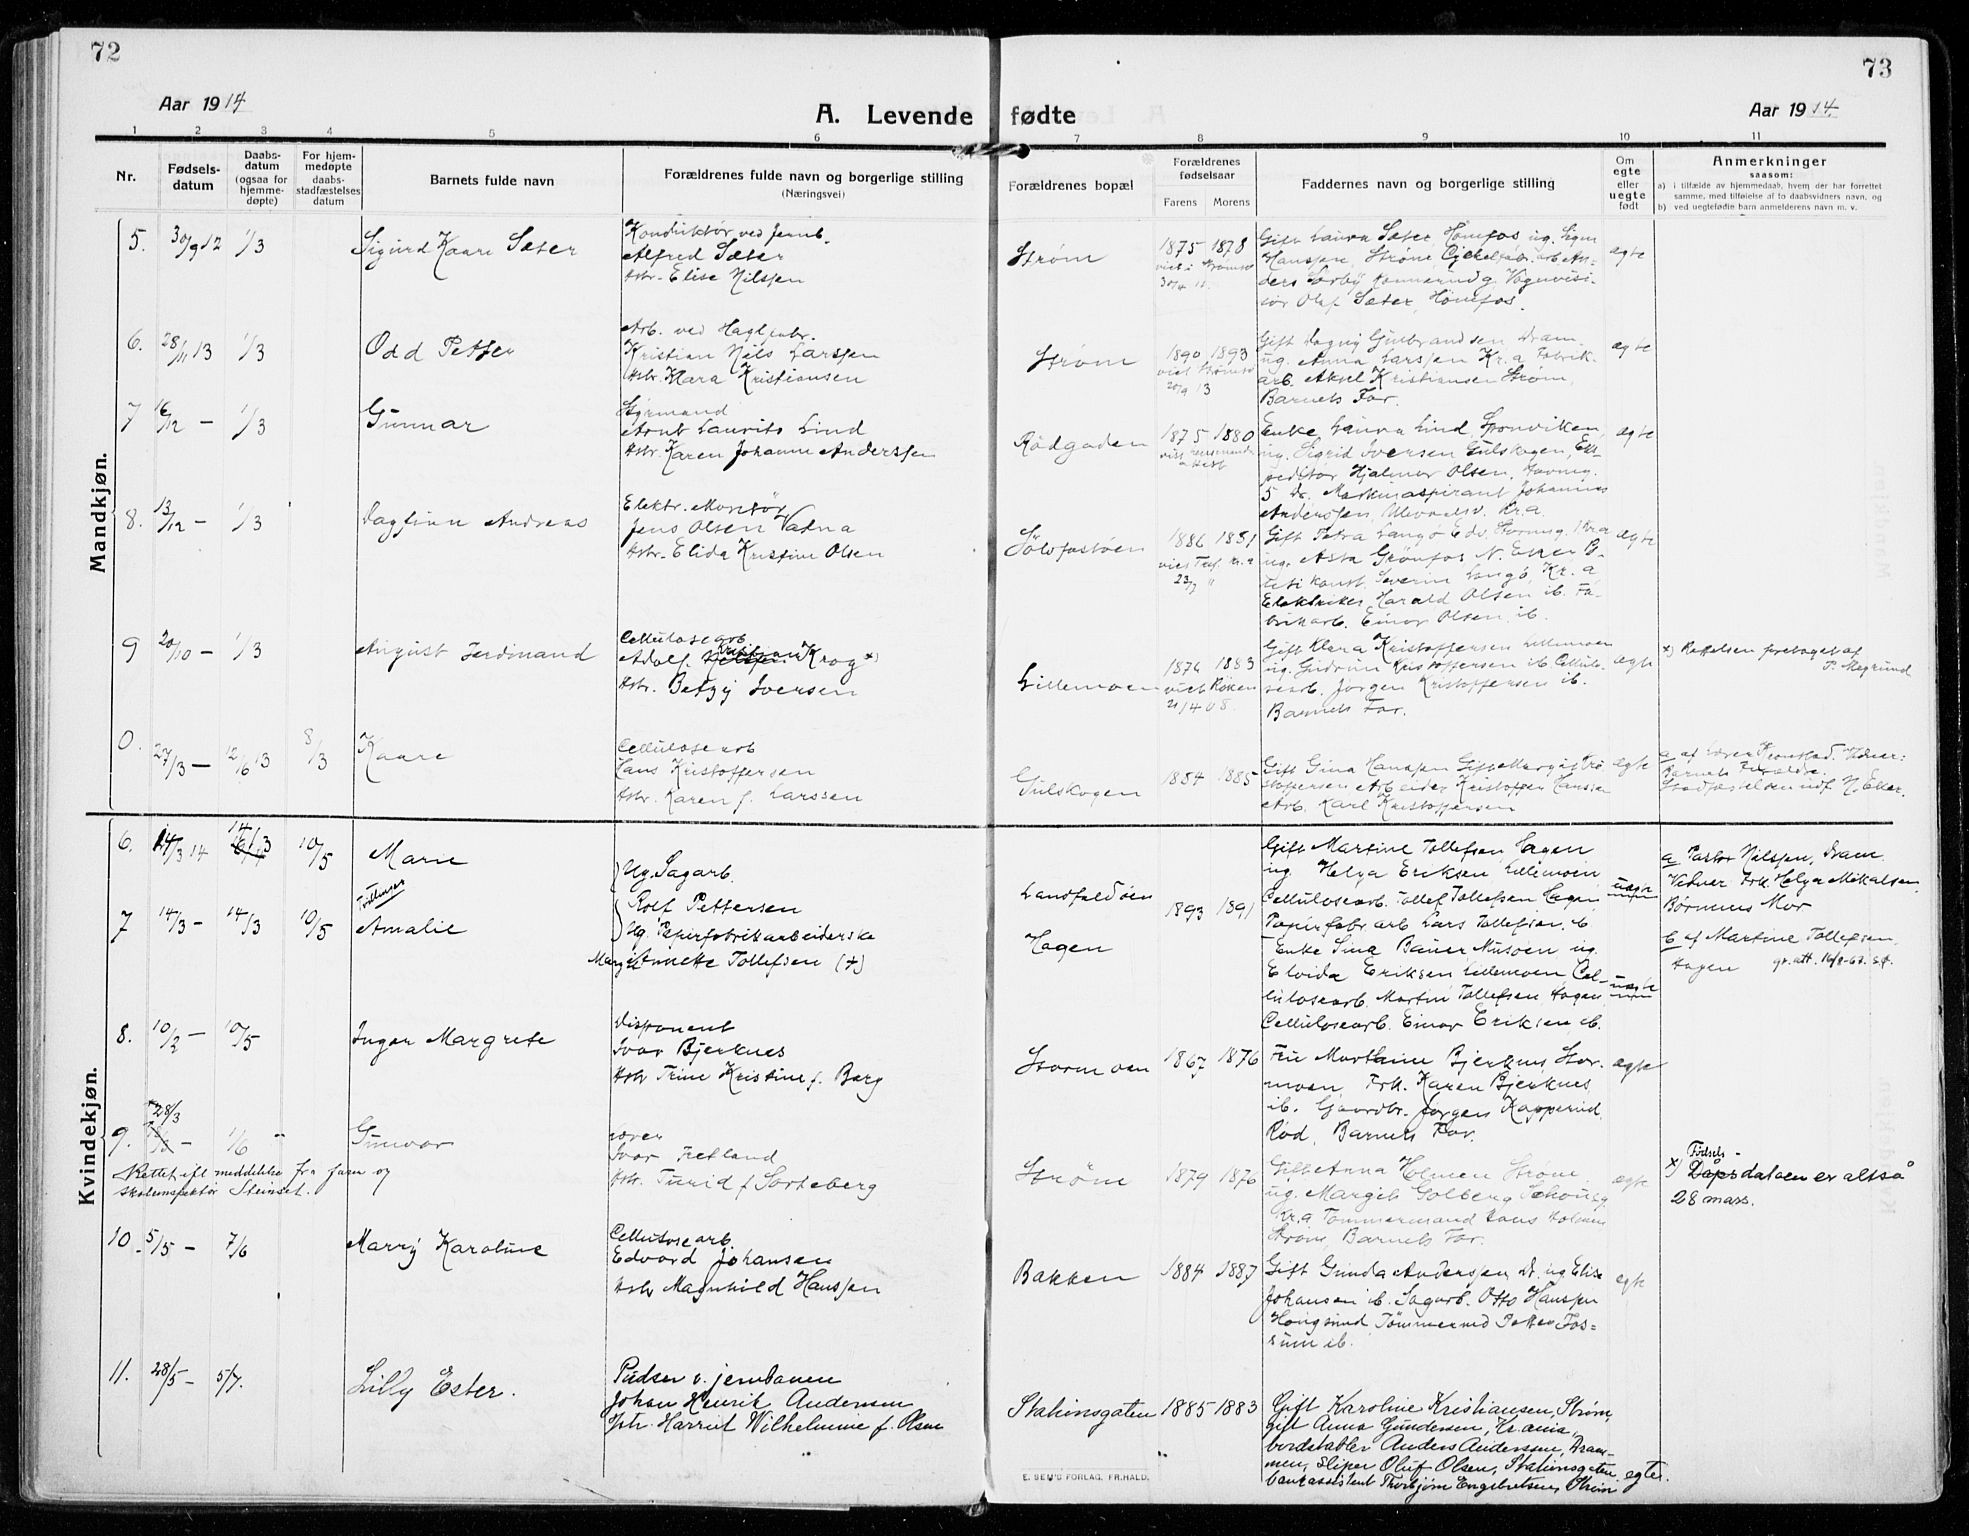 72
73
Aar 1914
A. Levende fødte
Aar 1914.
1 2 3 4 5 6 7 8 9 10 11
Nr.
Fødsels-
datum
Daabs-
datum
(ogsaa for
hjemme-
døpte)
For hjem-
medøpte
daabs-
stadfæstelses
datum
Barnets fulde navn
Forældrenes fulde navn og borgerlige stilling
(Næringsvei)
Forældrenes bopæl
Forældrenes
fødselsaar
Farens Morens
Faddernes navn og borgerlige stilling
Om
egte
eller
uegte
født
Anmerkninger
saasom:
a) i tilfælde av hjemmedaab, hvem der har forrettet
samme, med tilføielse af to daabsvidners navn, og
b) ved uegtefødte barn anmelderens navn m. v.
Mandkjøn.
5. 30/9 12 1/3 Sigurd Kaare Sæter
Konduktør ved jernb.
Alfred Sæter
Hstr. Elise Nilssen
Strøm
1875 1878
Gift Laura Sæter, Hønefos ug. Signe
Hanssen, Strøm,
Olaf Sæter, Hønefos.
egte
6. 28/11 13 1/3 Odd Petter
Arb. ved
Kristian Nils Larssen
Hstr. Klara Kristiansen
Strøm
1890 1893
20/9 13
Gift Dagny Gulbrandsen Dram.
ug. Anna Larssen Kr.a Fabrik-
arb. Aksel Kristiansen Strøm,
Barnets Far.
egte
7 16/12 — 1/3 Gunnar
Styrmand
Arnt Laurits Lind
Hstr. Karen Johanne Anderssen
Rødgaden
1875 1880
Enke Laura Lind,
ug. Sigrid Iversen Gulskogen, Eks-
peditør Hjalmar Olsen,
5 Dr. Maskinaspirant Johannes
Anderssen, Ullevaalsv. Kr.a
egte
8. 13/12 — 1/3 Dagfinn Andreas
Elektr. Montør
Jens Olsen Vatna
Hstr. Elida Kristine Olsen
1886
Gift Petra Langø
ug. Asta Grønfos N. Eker
Severin Langø, Kr.a
Elektriker Harald Olsen ib. Fa-
brikarb. Einar Olsen, ib.
egte
9 20/10 — 1/3 August Ferdinand
Cellulosearb
Adolf Kristian Krog x)
Hstr. Betzy Iversen
Lillemoen
1876 1883
viet Røken
21/4 08.
Gift Klara Kristoffersen Lillemoen
ug. Gudrun Kristoffersen ib Cellulo-
searb. Jørgen Kristoffersen ib.
Barnets Far.
egte
x) Rettelsen foretaget af
P. Megrund
0. 27/3 — 12/6 13 8/3 Kaare
Cellulosearb
Hans Kristoffersen
Hstr. Karen f. Larssen
Gulskogen
1884 1885
Gift Gina Hanssen Gift Margit Kri
stoffersen Arbeider Kristoffer Hanssen
Arb. Karl Kristoffersen
egte
Barnets Forældre.
Stadfæstelsen udf. N. Eker.
Kvindekjøn.
6. 14/3 14 14/3 10/5 Marie
Tvillinger
7 14/3 — 14/3 10/5 Amalie
Ug. Sagarb.
Rolf Pettersen
Ug. Papirfabrikarbeiderske
Margit Annette Tollefsen (+)
Landfaldøen
Hagen
1893 1891
Gift Martine Tollefsen Hagen
ug. Helga Eriksen Lillemoen
Cellulosearb. Tollef Tollefsen Hagen
Papirfabr arb Lars Tollefsen ib
Enke Sina Bauer ug.
Elvida Eriksen Lillemoen Cel-
lulosearb. Martin Tollefsen Hagen
Cellulosearb. Einar Eriksen, ib.
uegte
uegte
a Pastor Nilssen, Dram.
Vidner Frk. Helga Mikalsen
Børnenes Mor
b af Martine Tollefsen,
Hagen
8. 10/2 — 10/5 Inger Margrete
Disponent
Ivar Bjerknes
Hstr Trine Kristine f. Berg
Stormoen
1867 1876
Fru Marthine Bjerknes Stor-
moen Frk. Karen Bjerknes
ib. Gaardbr. Jørgen Kopperud
Rød, Barnets Far.
egte
x 28/3
9. — 1/6 — Gunvor
Lærer
Ivar Tretland
Hstr. Turid f Sorteberg
Rettet eft meddelelse fra faren og
skoleinspektør Steinset.
Strøm
1879 1876
Gift Anna Holmen Strøm
ug. Margit Solberg
Kr.a Tømmermand Hans Holmen
Strøm, Barnets Far.
egte
Fødsels-
x) Dåpsdatoen er altså
28 mars.
10. 5/5 — 7/6 Marry Karoline
Cellulosearb.
Edvard Johansen
Hstr Magnhild Hanssen
Bakken
1884 1887
Gift Gunda Anderssen, Dr. ug Elise
Johansen ib. Sagarb. Otto Hanssen
Fos-
sum ib.
egte
11. 28/5 — 5/7. Lilly Ester.
Pudser v. jernbanen
Johan Henrik Andersen
Hstr. Harriet Wilhelmine f. Olsen
Stationsgaten
1885 1883
Gift Karoline Kristiansen, Strøm,
gift Anna Gundersen, Kr.ania,
bordstabler Anders Andersen, Dram-
men, sliper Oluf Olsen, Stationsgaten,
bankassistent Thorbjørn Engebretsen, Strøm
egte.
E. SEM'S FORLAG, FR.HALD.